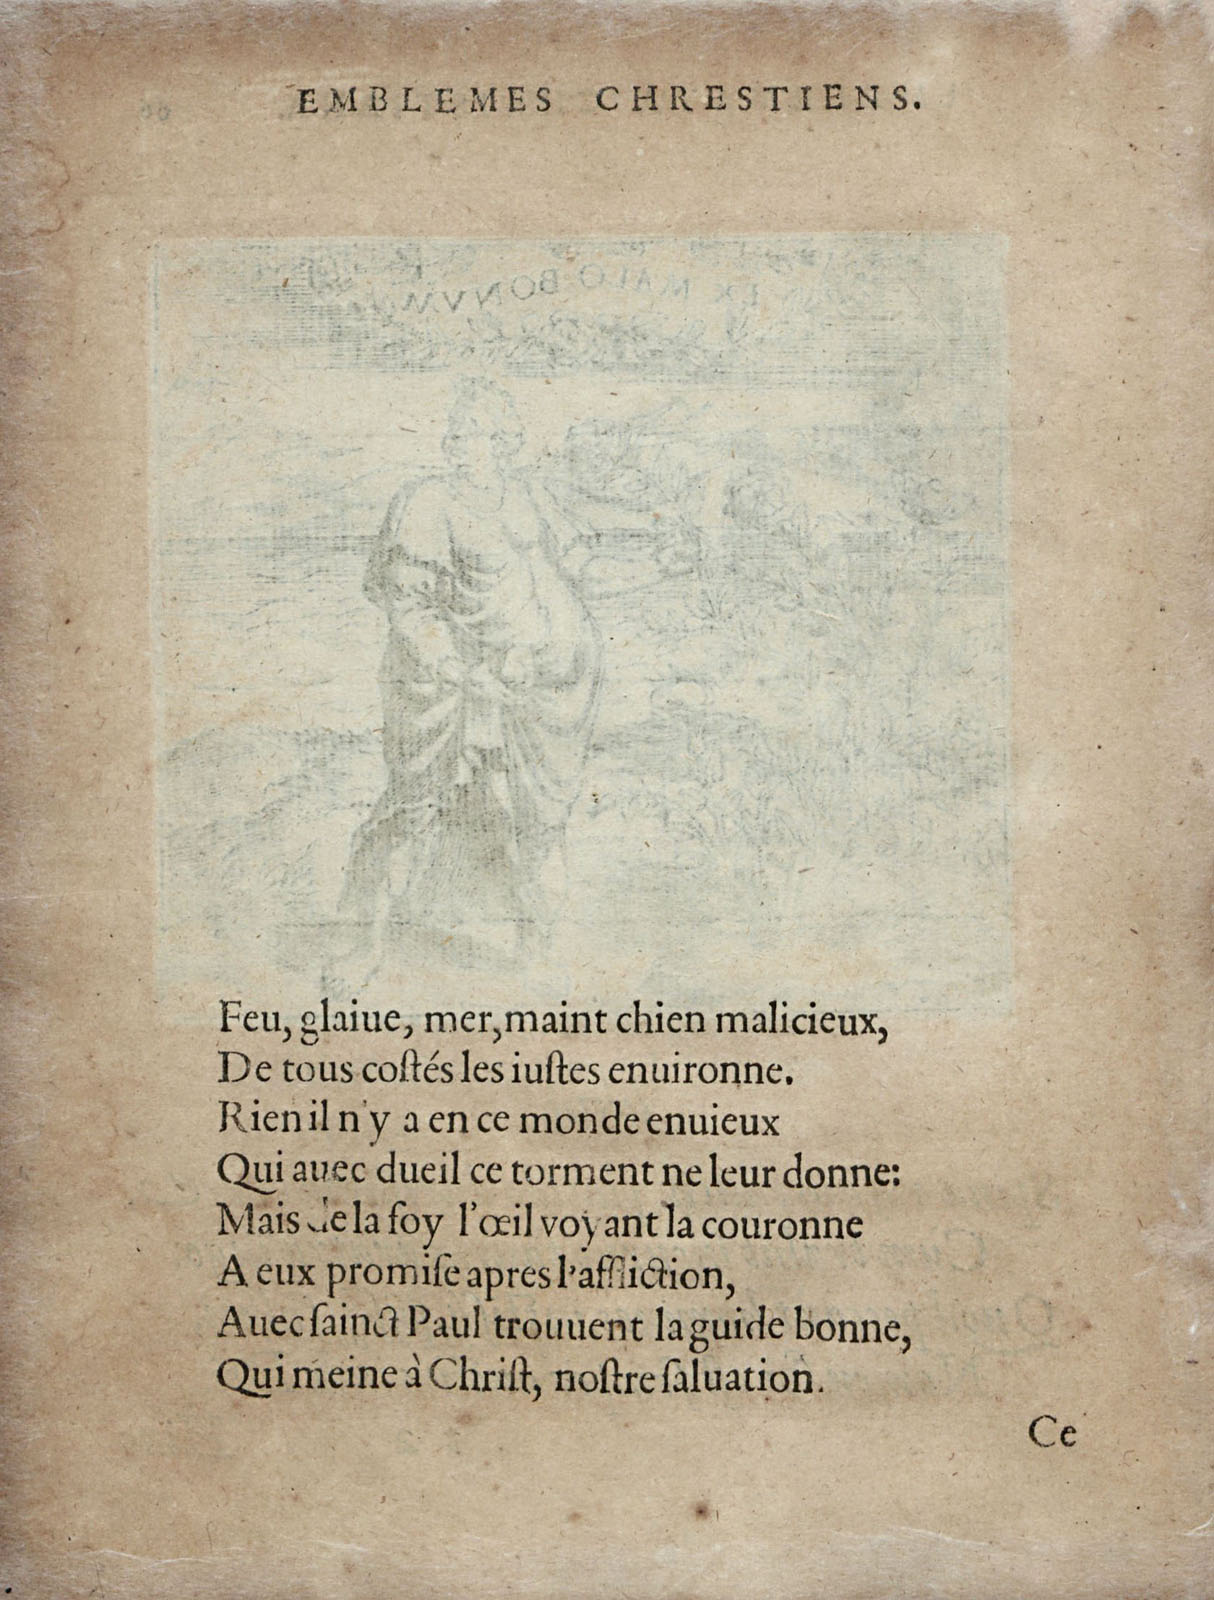 EMBLEMES CHRESTIENS.
EX MALO BONVM
Feu, glaiue, mer, maint chien malicieux,
De tous coſtés les iuſtes enuironne.
Rien il n'y a en ce monde enuieux
Qui auec dueil ce torment ne leur donne:
Mais de la foy l'œil voyant la couronne
A eux promiſe apres l'affliction,
Auec ſainct Paul trouuent la guide bonne,
Qui meine à Chriſt, noſtre ſaluation.
Ce